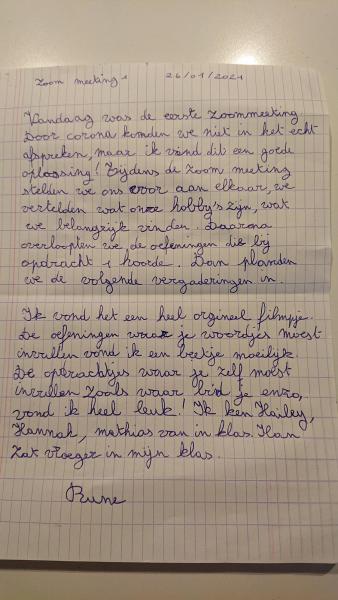 Zoom meeting 1 26/01/2021
Vandaag was de eerste zoommeeting
Door corona konden we niet in het echt
afspreken, maar ik vind dit een goede
oplossing! Tijdens de zoom meeting
stelden we ons voor aan elkaar, we
vertelden wat onze hobby's zijn, wat
we belangrijk vinden. Daarna
overloopten we, de oefeningen die bij
opdracht 1 hoorde. Dan planden
we de volgende vergaderingen in.
Ik vond het een heel orgineel filmpje.
De oefeningen waar je woordjes moest
invullen vond ik een beetje moeilijk.
De opdrachtjes waar je zelf moest
invullen zoals waar ben je enzo,
vond ik heel leuk! Ik ken Hailey,
Hannah, mathias van in klas. Han
zat vroeger in mijn klas.
Rune